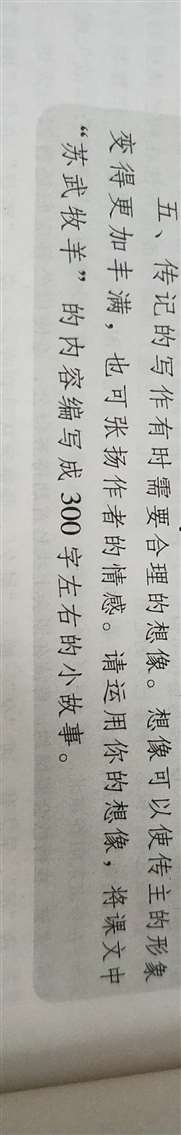 五、传记的写作有时需要合理的想像。想像可以使传主的形象
变得更加丰满，也可张扬作者的情感。请运用你的想像，将课文中
“苏武牧羊”的内容编写成300字左右的小故事。